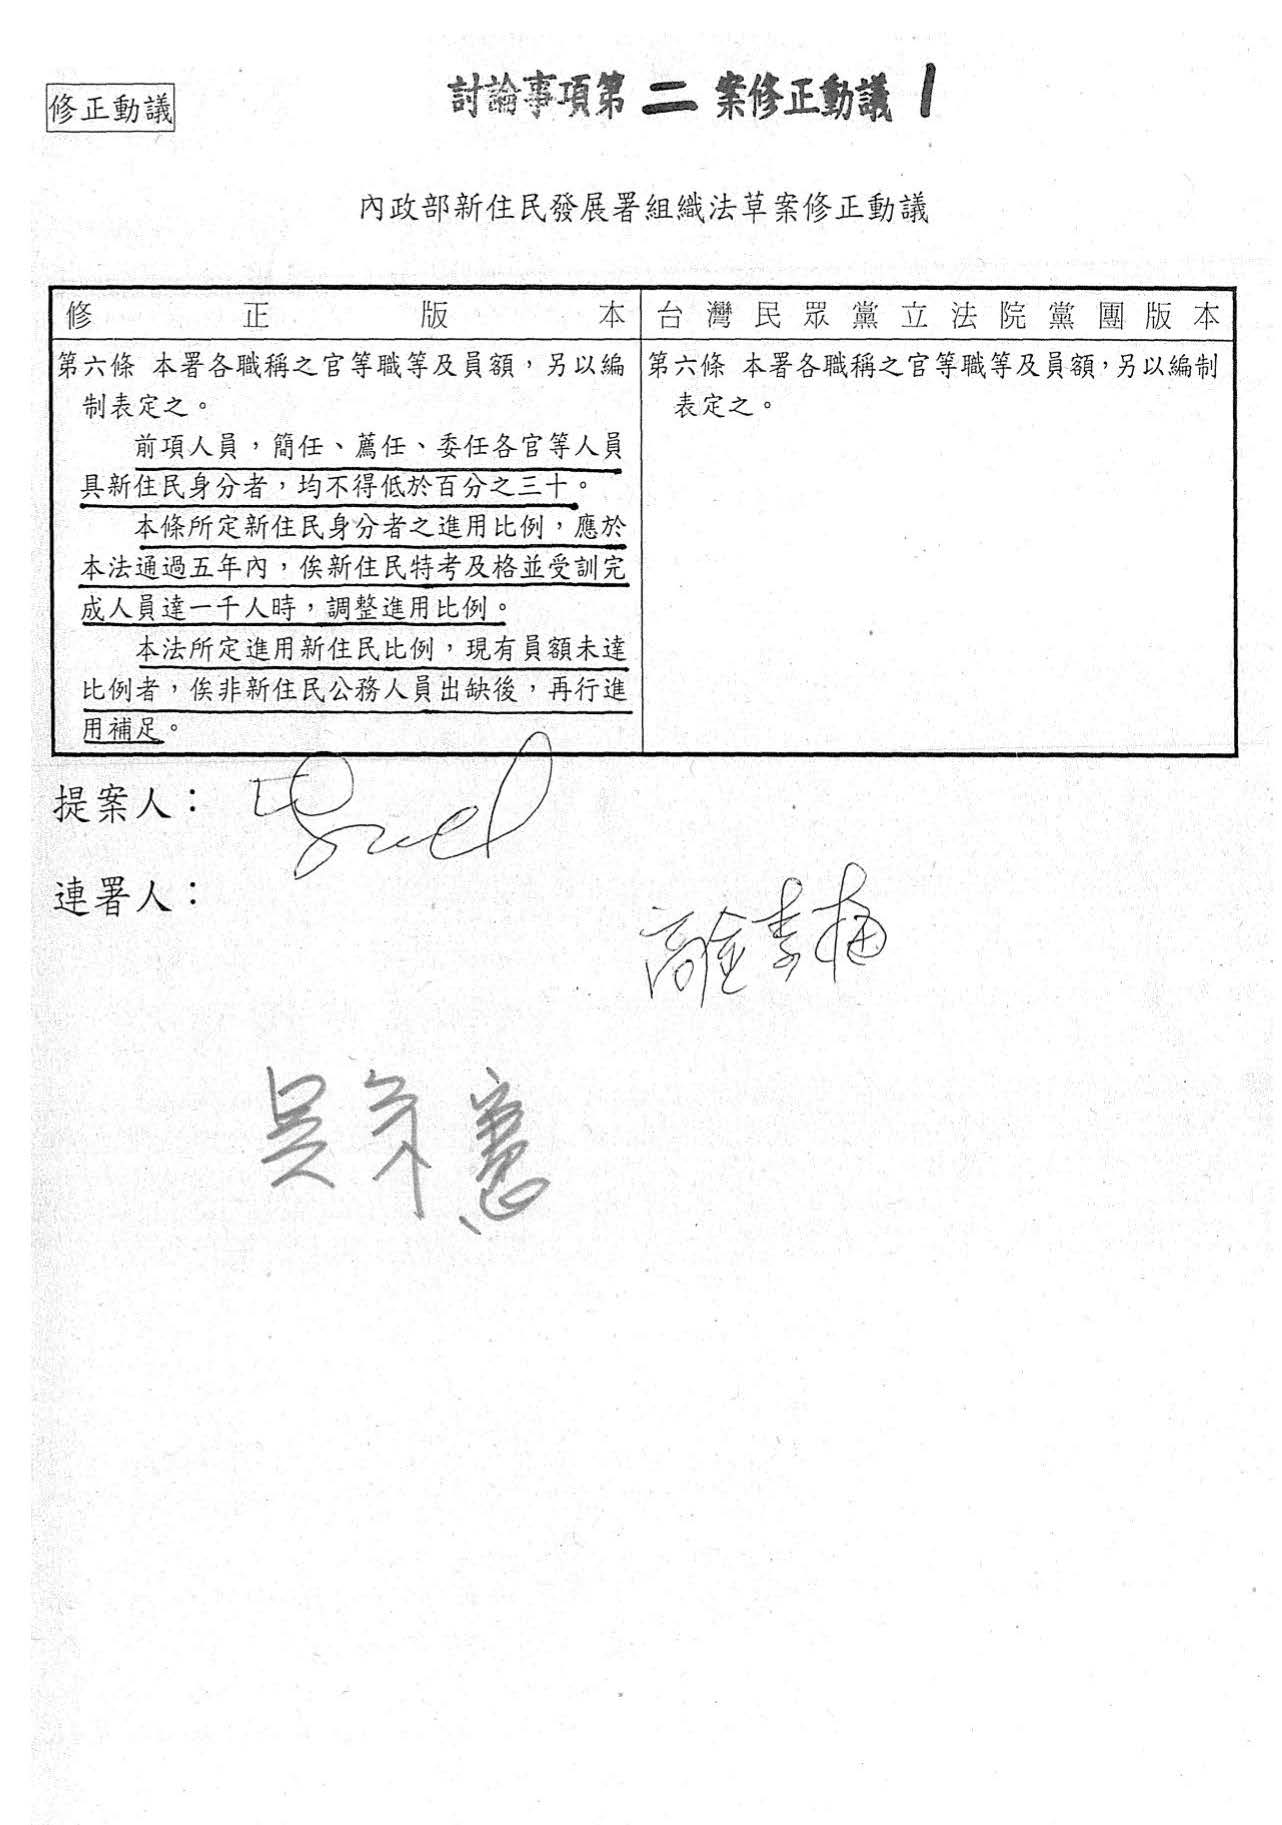 修正動議
討論事項第二案修正動議 1
內政部新住民發展署組織法草案修正動議
修正版本
第六條 本署各職稱之官等職等及員額，另以編
制表定之。
前項人員，簡任、薦任、委任各官等人員
具新住民身分者，均不得低於百分之三十。
本條所定新住民身分者之進用比例，應於
本法通過五年內，俟新住民特考及格並受訓完
成人員達一千人時，調整進用比例。
本法所定進用新住民比例，現有員額未達
比例者，俟非新住民公務人員出缺後，再行進
用補足。
台灣民眾黨立法院黨團版本
第六條 本署各職稱之官等職等及員額，另以編制
表定之。
提案人：
連署人：
高金素梅